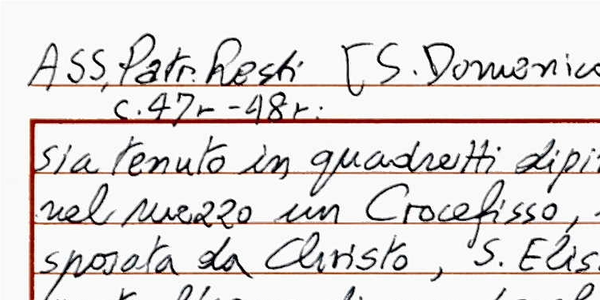 ASS, Patr. Resti [S. Domenico
c. 47r - 48r:
sia tenuto in quadretti dipi
nel mezzo un Crocefisso,
sposata da Christo, S. Elis